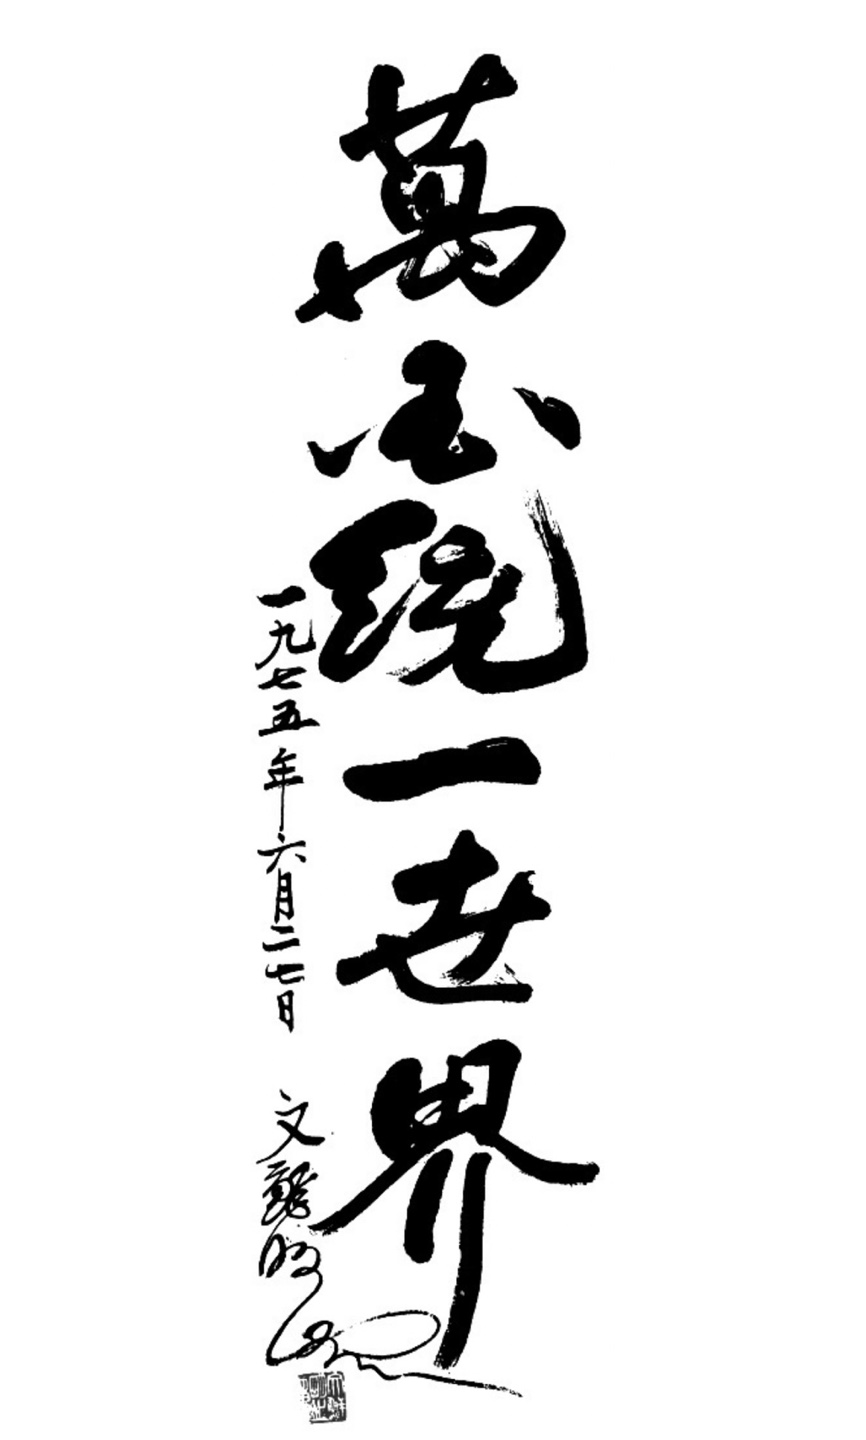 萬國統一世界
一九七五年六月二七日 文鮮明